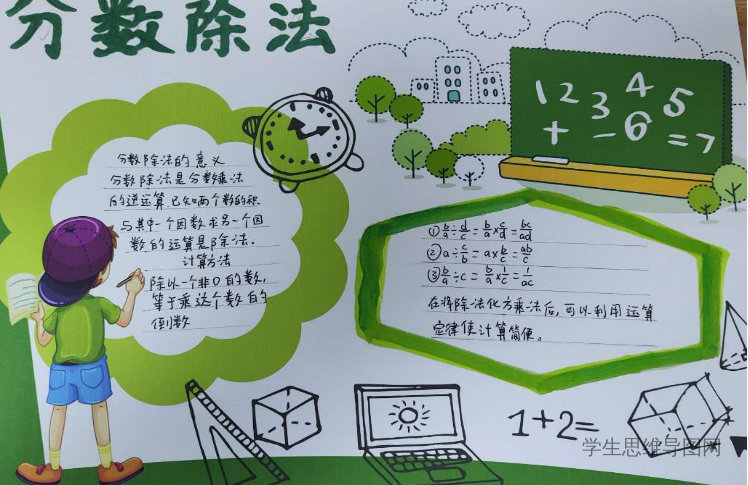 分数除法
分数除法的意义
分数除法是分数乘法
的逆运算已知两个数的积
与其中一个因数求另一个因
数的运算是除法.
计算方法
除以一个非0的数,
等于乘这个数的
倒数
1 2 3 4 5
+ - 6 = 7
①b/a÷d/c=b/a×c/d=bc/ad
②a÷c/b=a×b/c=ab/c
③b/a÷c=b/a×1/c=1/ac
在将除法化为乘法后,可以利用运算
定律使计算简便。
1+2=
学生思维导图网